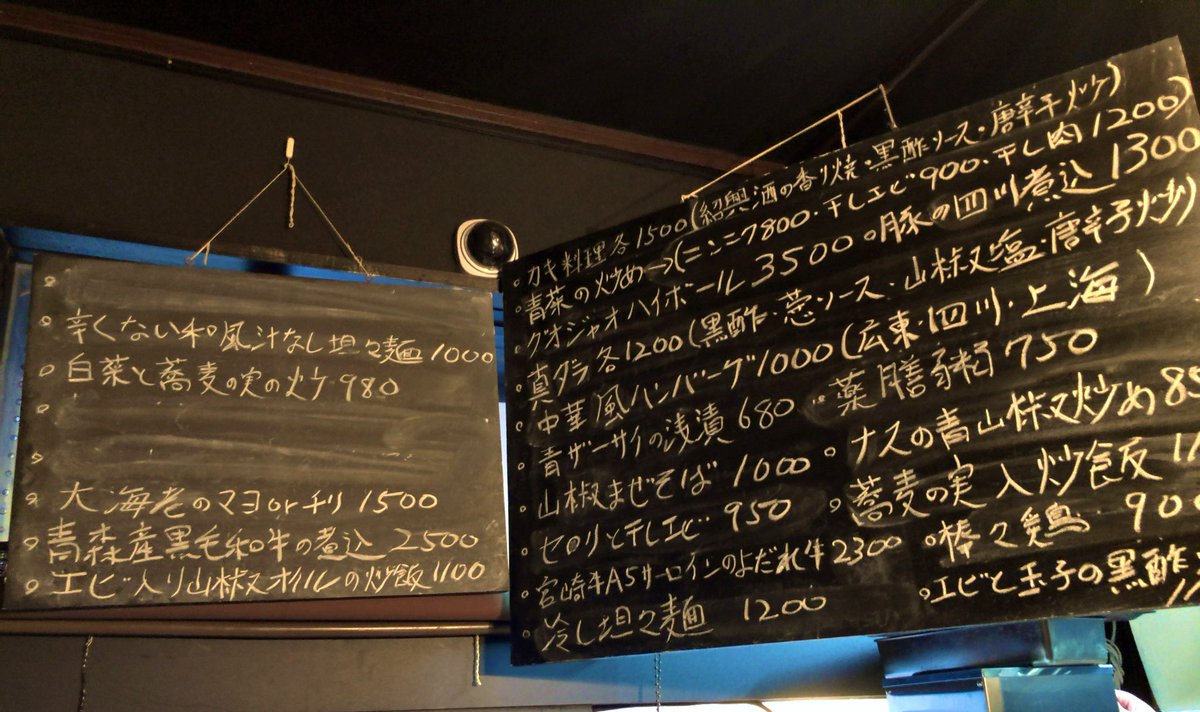 辛くない和風汁なし坦々麺 1000
白菜と蕎麦の実の炒 980
大海老のマヨorチリ 1500
青森産黒毛和牛の煮込 2500
エビ入り山椒オイルの炒飯 1100
カキ料理各1500(紹興酒の香り焼・黒酢ソース・唐辛子炒)
青菜の炒め→(ニンニク800・干しエビ900・干し肉1200)
グオジャオハイボール 3500 豚の四川煮込 1300
真ダラ各1200(黒酢・葱ソース・山椒塩・唐辛子炒)
中華風ハンバーグ1000(広東・四川・上海)
青ザーサイの浅漬 680 薬膳粥 750
山椒まぜそば 1000 ナスの青山椒炒め
セロリと干しエビ 950 蕎麦の実入炒飯
宮崎牛A5サーロインのよだれ牛2300 棒々鶏
冷し坦々麺 1200 エビと玉子の黒酢